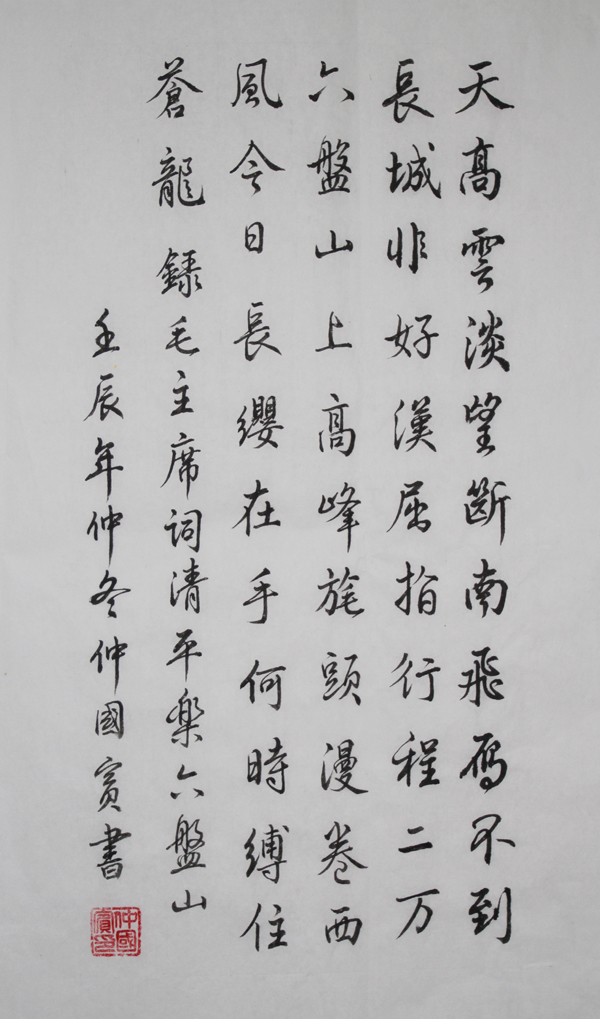 天高雲淡望斷南飛雁不到
長城非好漢屈指行程二万
六盤山上高峰旄頭漫卷西
風今日長纓在手何時縛住
蒼龍錄毛主席詞清平樂六盤山
壬辰年仲冬仲國賓書
仲國賓印